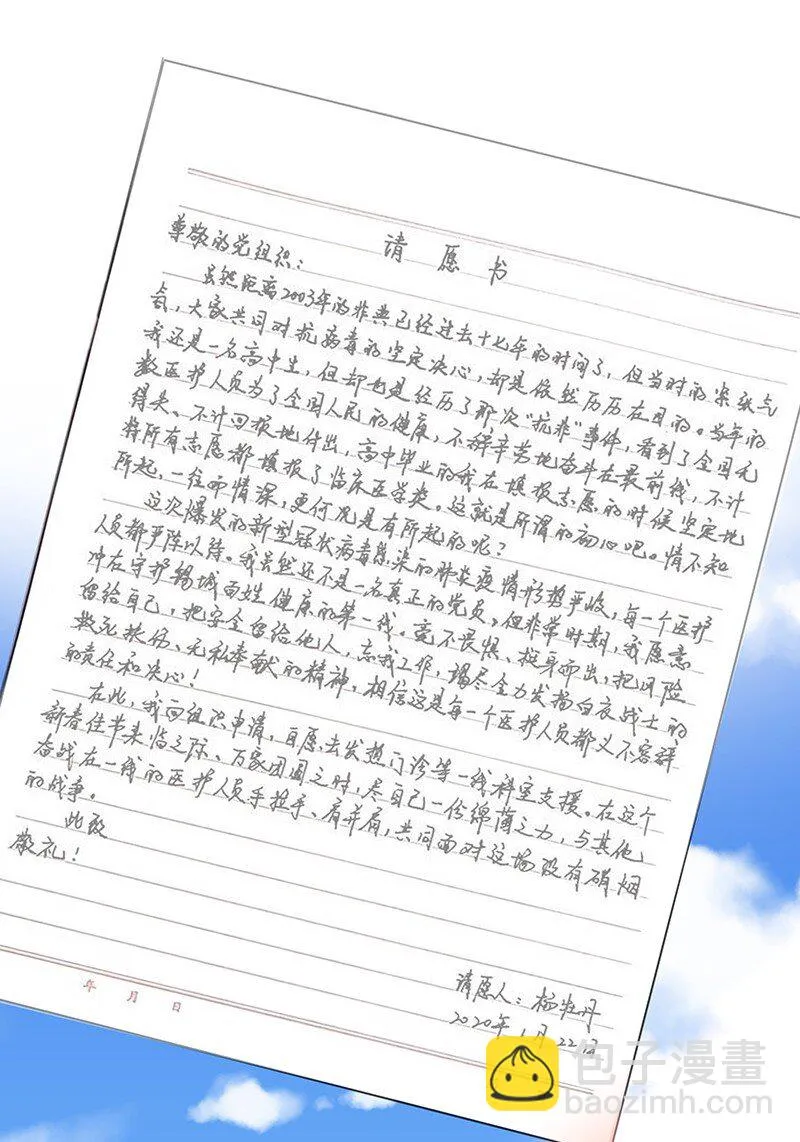 请愿书
尊敬的党组织：
虽然距离2003年的非典已经过去十七年的时间了，但当时的紧张气
氛，大家共同对抗病毒的坚定决心，却是依然历历在目的。当年的
我还是一名高中生，但却也是经历了那次“抗非”事件，看到了全国无
数医护人员为了全国人民的健康，不辞辛劳地奋斗在最前线，不计
得失、不计回报地付出，高中毕业的我在填报志愿的时候坚定地
将所有志愿都填报了临床医学类。这就是所谓的初心吧。情不知
所起，一往而情深，更何况是有所起的呢？
这次爆发的新型冠状病毒感染的肺炎疫情形势严峻，每一个医护
人员都严阵以待。我虽然还不是一名真正的党员，但非常时期，我愿意
冲在守护锡城百姓健康的第一线。毫不畏惧、挺身而出，把风险
留给自己，把安全留给他人，忘我工作，竭尽全力发扬白衣战士的
救死扶伤、无私奉献的精神，相信这是每一个医护人员都义不容辞
的责任和决心！
在此，我向组织申请，自愿去发热门诊等一线科室支援。在这个
新春佳节来临之际、万家团圆之时，尽自己一份绵薄之力，与其他
奋战在一线的医护人员手拉手、肩并肩，共同面对这场没有硝烟
的战争。
此致
敬礼！
请愿人：杨牡丹
2020年1月22日
年 月 日
包子漫畫
baozimh.com